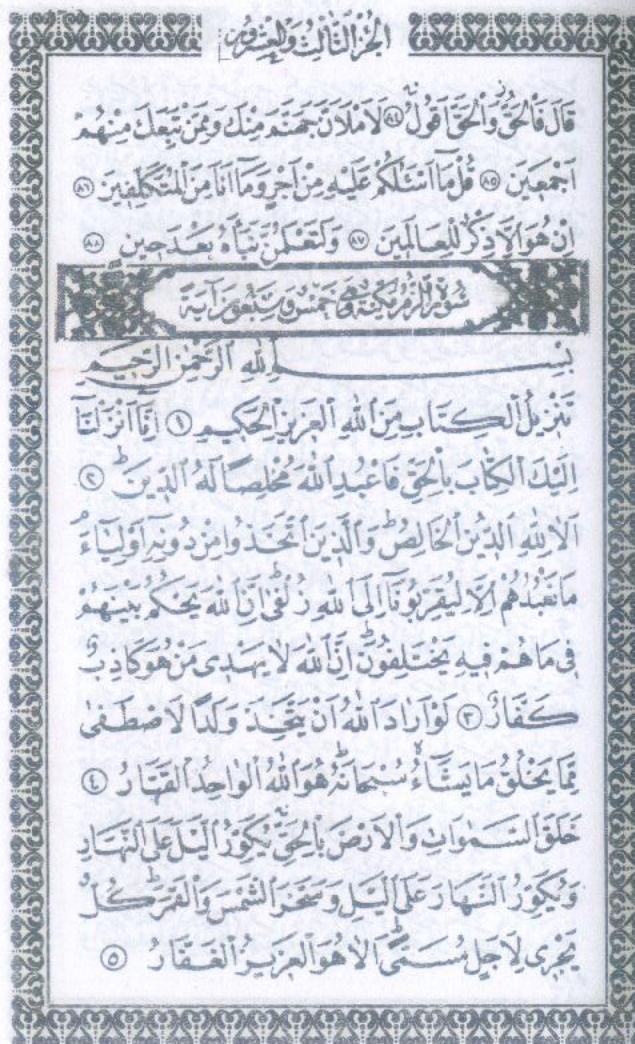 الجزء الثالث والعشرون
قَالَ فَالْحَقُّ وَالْحَقَّ اَقُولُ ٨٤ لَاَمْلَاَنَّ جَهَنَّمَ مِنْكَ وَمِمَّنْ تَبِعَكَ مِنْهُمْ
اَجْمَعِينَ ٨٥ قُلْ مَٓا اَسْـَٔلُكُمْ عَلَيْهِ مِنْ اَجْرٍ وَمَٓا اَنَا مِنَ الْمُتَكَلِّفِينَ ٨٦
اِنْ هُوَ اِلَّا ذِكْرٌ لِلْعَالَمِينَ ٨٧ وَلَتَعْلَمُنَّ نَبَاَهُ بَعْدَ حِينٍ ٨٨
سُورَةُ الزُّمَرِ مَكِّيَّةٌ وَهِيَ خَمْسٌ وَسَبْعُونَ اٰيَةً
بِسْــــــــمِ اللّٰهِ الرَّحْمٰنِ الرَّحِيمِ
تَنْزِيلُ الْكِتَابِ مِنَ اللّٰهِ الْعَزِيزِ الْحَكِيمِ ١ اِنَّٓا اَنْزَلْنَٓا
اِلَيْكَ الْكِتَابَ بِالْحَقِّ فَاعْبُدِ اللّٰهَ مُخْلِصًا لَهُ الدِّينَ ط ٢
اَلَا لِلّٰهِ الدِّينُ الْخَالِصُ ط وَالَّذِينَ اتَّخَذُوا مِنْ دُونِهِٓ اَوْلِيَٓاءَ م
مَا نَعْبُدُهُمْ اِلَّا لِيُقَرِّبُونَٓا اِلَى اللّٰهِ زُلْفٰى ط اِنَّ اللّٰهَ يَحْكُمُ بَيْنَهُمْ
فِى مَا هُمْ فِيهِ يَخْتَلِفُونَ ط اِنَّ اللّٰهَ لَا يَهْدِى مَنْ هُوَ كَاذِبٌ
كَفَّارٌ ٣ لَوْ اَرَادَ اللّٰهُ اَنْ يَتَّخِذَ وَلَدًا لَاصْطَفٰى
مِمَّا يَخْلُقُ مَا يَشَٓاءُ لا سُبْحَانَهُ ط هُوَ اللّٰهُ الْوَاحِدُ الْقَهَّارُ ٤
خَلَقَ السَّمٰوَاتِ وَالْاَرْضَ بِالْحَقِّ ج يُكَوِّرُ الَّيْلَ عَلَى النَّهَارِ
وَيُكَوِّرُ النَّهَارَ عَلَى الَّيْلِ وَسَخَّرَ الشَّمْسَ وَالْقَمَرَ ط كُلٌّ
يَجْرِى لِاَجَلٍ مُسَمًّى ط اَلَا هُوَ الْعَزِيزُ الْغَفَّارُ ٥